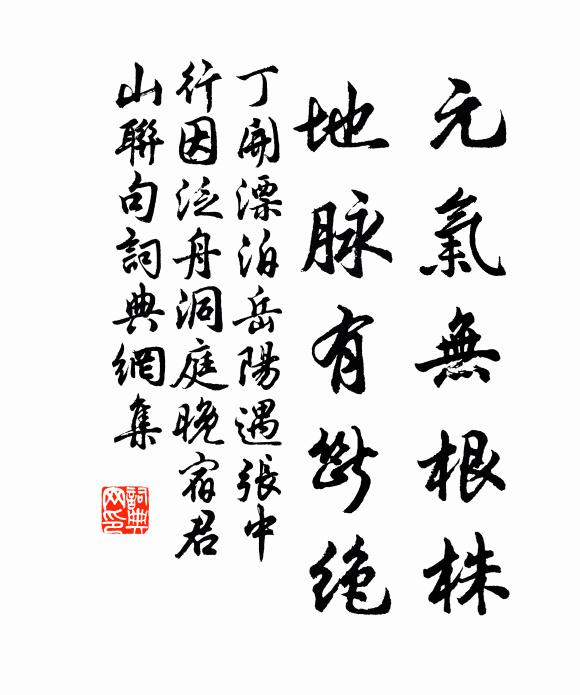 元氣無根株
地脉有斷絶
丁開漂泊岳陽遇張中
行因泛舟洞庭晚宿君
山聯句詞典網集
詞典
网印